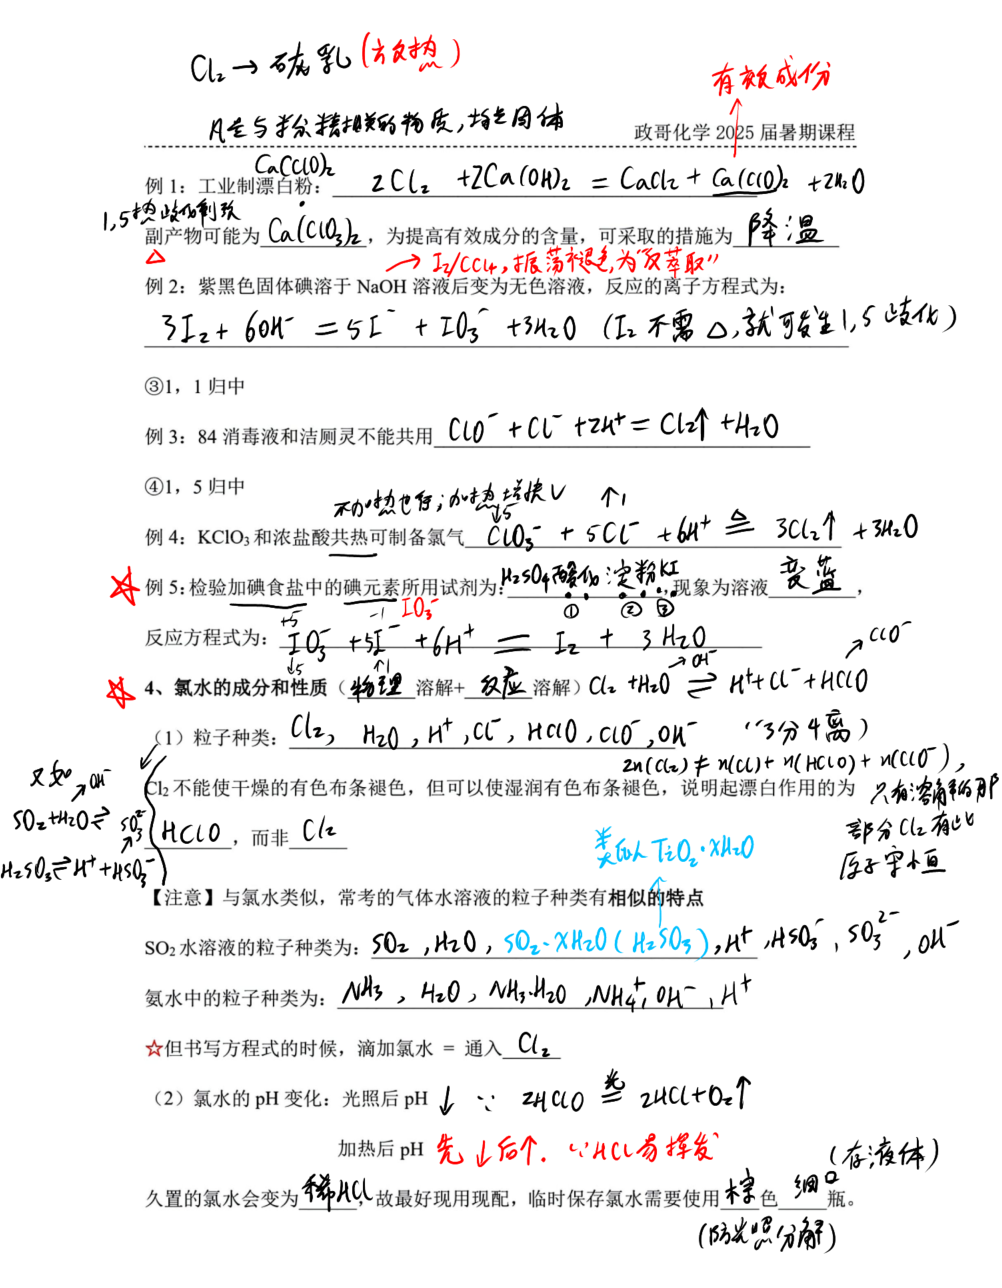 Cl₂ → 石灰乳 (放热)
有效成份
凡是与粉精相关的物质,均是固体
政哥化学 2025 届暑期课程
Ca(ClO)₂
例 1：工业制漂白粉：2Cl₂ +2Ca(OH)₂ = CaCl₂ + Ca(ClO)₂ +2H₂O
1,5热歧化制取
副产物可能为 Ca(ClO₃)₂ ，为提高有效成分的含量，可采取的措施为 降温
△ → I₂/CCl₄,振荡褪色,为"反萃取"
例 2：紫黑色固体碘溶于 NaOH 溶液后变为无色溶液，反应的离子方程式为：
3I₂ + 6OH⁻ = 5I⁻ + IO₃⁻ +3H₂O (I₂ 不需 △,就可发生1,5歧化)
③1，1 归中
例 3：84 消毒液和洁厕灵不能共用 ClO⁻ + Cl⁻ +2H⁺ = Cl₂↑ +H₂O
④1，5 归中
不加热也行;加热增快 ↓5 ↑1
例 4：KClO₃ 和浓盐酸共热可制备氯气 ClO₃⁻ + 5Cl⁻ +6H⁺ ≜ 3Cl₂↑ +3H₂O
☆ 例 5：检验加碘食盐中的碘元素所用试剂为: H₂SO₄酸化 淀粉KI ,现象为溶液 变蓝 ，
IO₃⁻ ① ② ③
+5 -1
反应方程式为: IO₃⁻ +5I⁻ +6H⁺ = I₂ + 3H₂O
↓5 ↑1 ↗OH⁻ ↗ClO⁻
☆ 4、氯水的成分和性质（物理 溶解+ 反应 溶解）Cl₂ +H₂O ⇌ H⁺+Cl⁻+HClO
（1）粒子种类：Cl₂, H₂O , H⁺ ,Cl⁻, HClO ,ClO⁻ ,OH⁻ "3分4离)
2n(Cl₂) ≠ n(Cl⁻) + n(HClO) + n(ClO⁻),
Cl₂ 不能使干燥的有色布条褪色，但可以使湿润有色布条褪色，说明起漂白作用的为
只有溶解的那
部分Cl₂有此
原子守恒
HClO ，而非 Cl₂
又如 ↗OH⁻
SO₂+H₂O⇌ SO₃²⁻
H₂SO₃⇌H⁺+HSO₃⁻
类似 TiO₂·xH₂O
【注意】与氯水类似，常考的气体水溶液的粒子种类有相似的特点
SO₂ 水溶液的粒子种类为: SO₂ ,H₂O , SO₂·xH₂O (H₂SO₃) ,H⁺ ,HSO₃⁻ , SO₃²⁻ ,OH⁻
氨水中的粒子种类为: NH₃ , H₂O , NH₃·H₂O ,NH₄⁺, OH⁻ , H⁺
☆但书写方程式的时候，滴加氯水 = 通入 Cl₂
（2）氯水的 pH 变化：光照后 pH ↓ ∵ 2HClO =光= 2HCl+O₂↑
加热后 pH 先↓后↑. ∵HCl易挥发
(存液体)
久置的氯水会变为 稀HCl ，故最好现用现配，临时保存氯水需要使用 棕 色 细口 瓶。
(防光照分解)